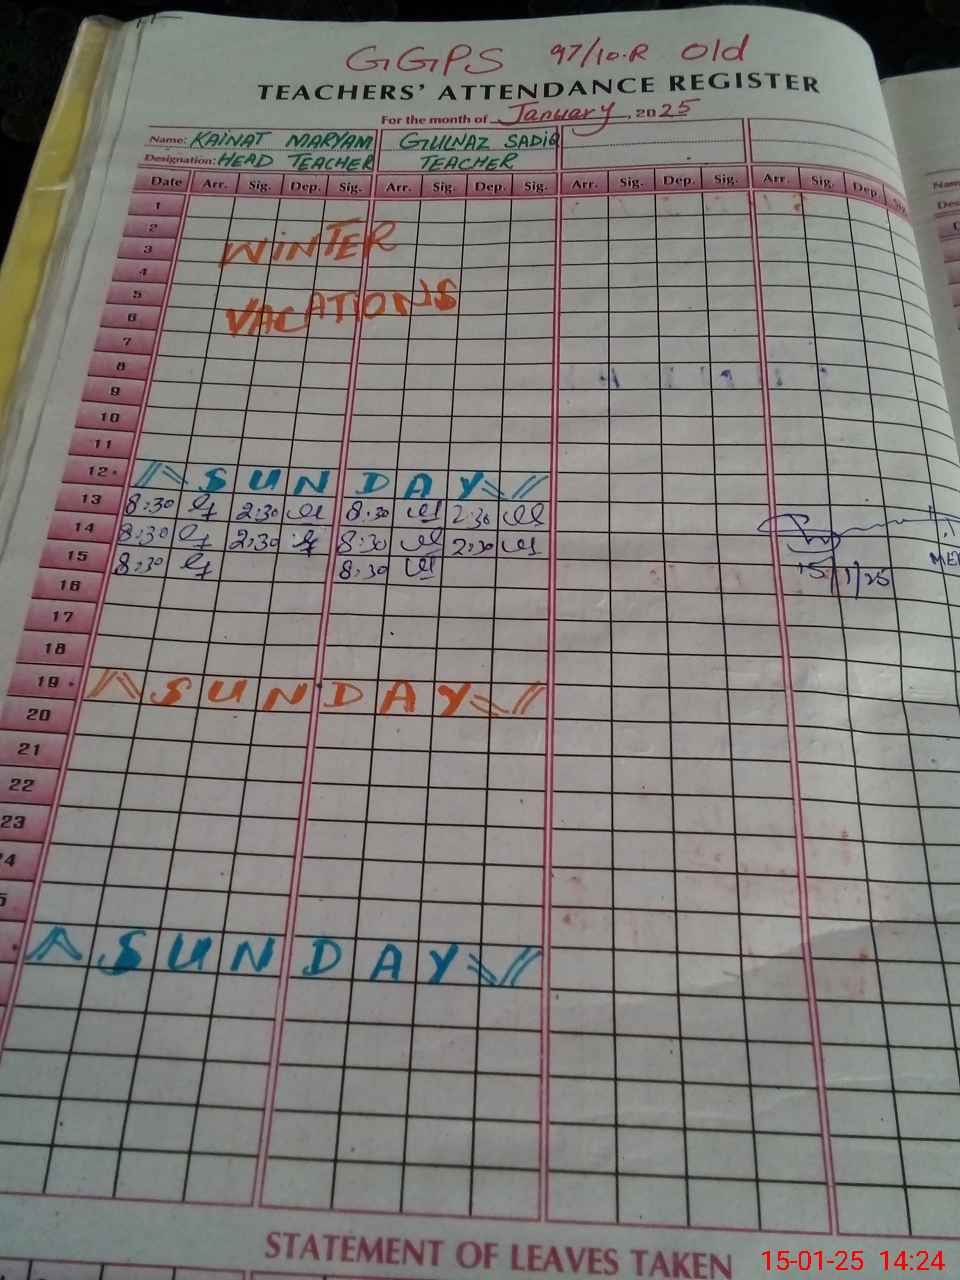 GGPS 97/10.R Old
TEACHERS' ATTENDANCE REGISTER
For the month of January, 2025
Name: KAINAT MARYAM GULNAZ SADIQ
Designation: HEAD TEACHER TEACHER
Date Arr. Sig. Dep. Sig. Arr. Sig. Dep. Sig. Arr. Sig. Dep. Sig. Arr. Sig. Dep. Sig.
1
2
3 WINTER
4
5
6 VACATIONS
7
8
9
10
11
12 SUNDAY
13 8:30 2:30 8:30 2:30
14 8:30 2:30 8:30 2:30
15 8:30 8:30 15/1/25
16
17
18
19 SUNDAY
20
21
22
23
SUNDAY
STATEMENT OF LEAVES TAKEN
15-01-25 14:24